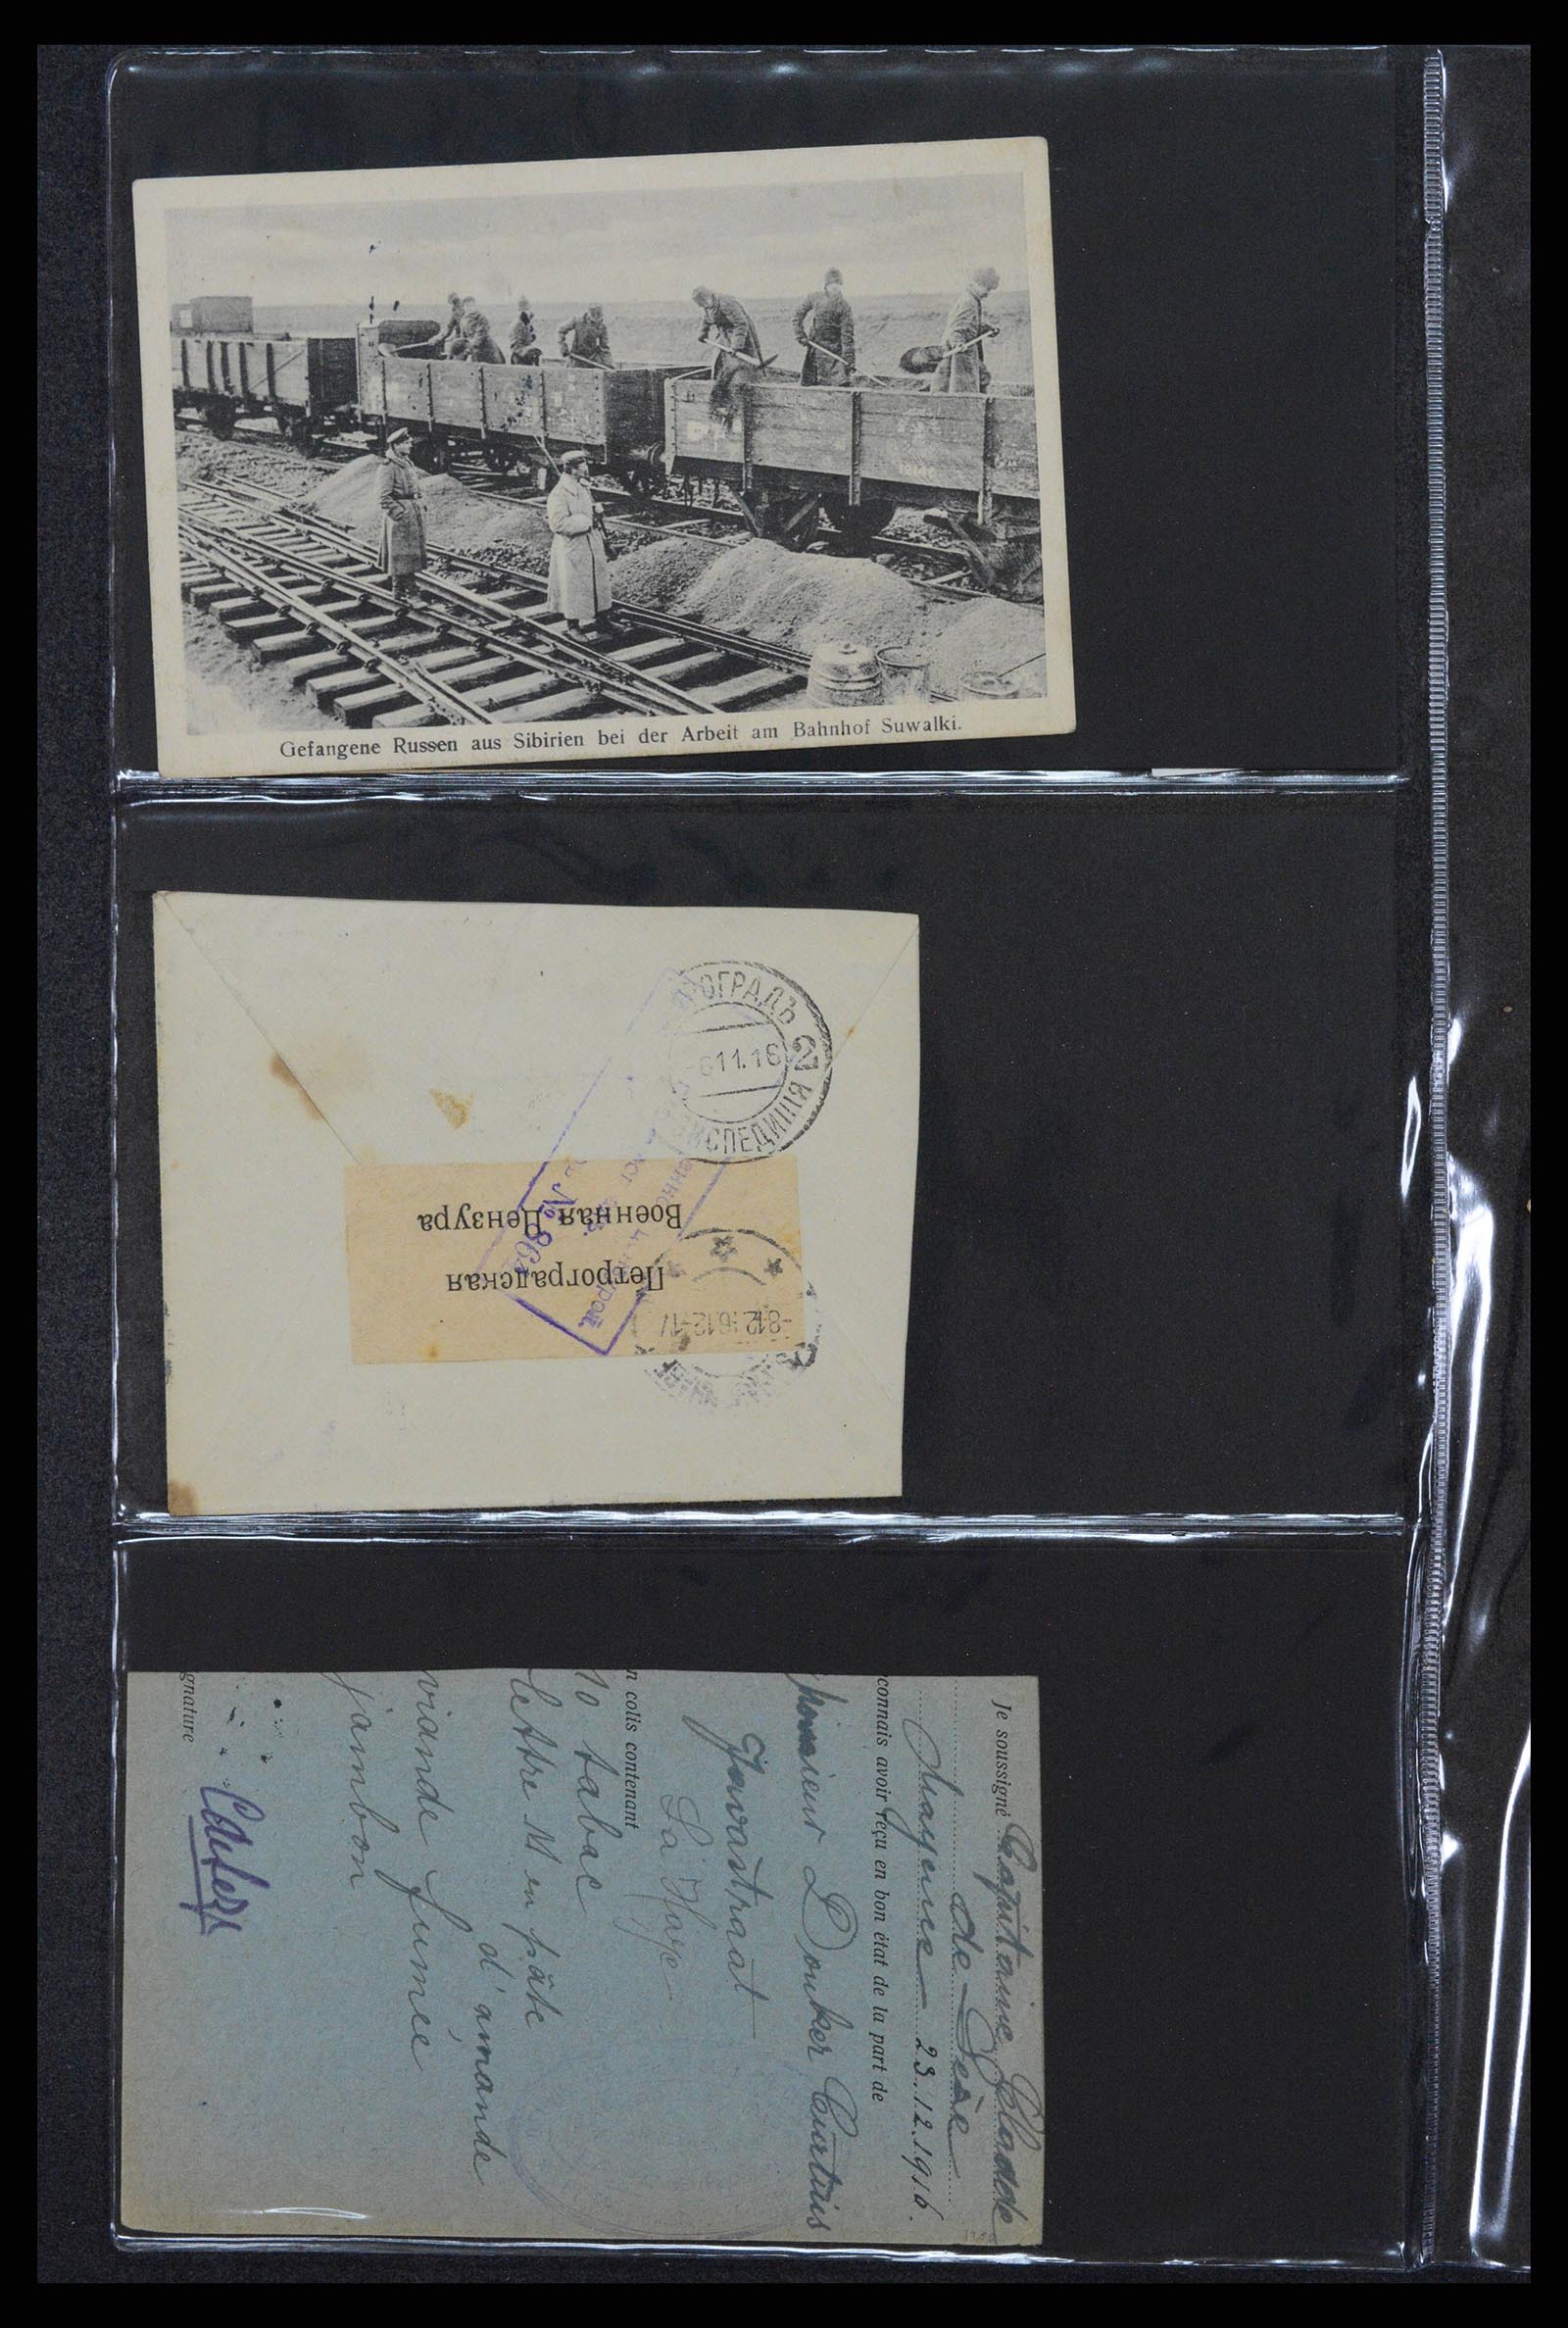 Gefangene Russen aus Sibirien bei der Arbeit am Bahnhof Suwalki.
ОГРАДЪ 2
611.16
СПЕДИЦІЯ
Петроградская
Военная Цензура
№
-8.12.16.12-1V
Je soussigné Capitaine
de
Mayence 23.12.1916.
connais avoir reçu en bon état de la part de
Monsieur Donker Curtius
Javastraat
La Haye
n colis contenant
10 tabac
lettre M en pâte
d'amande
viande fumée
jambon
gnature